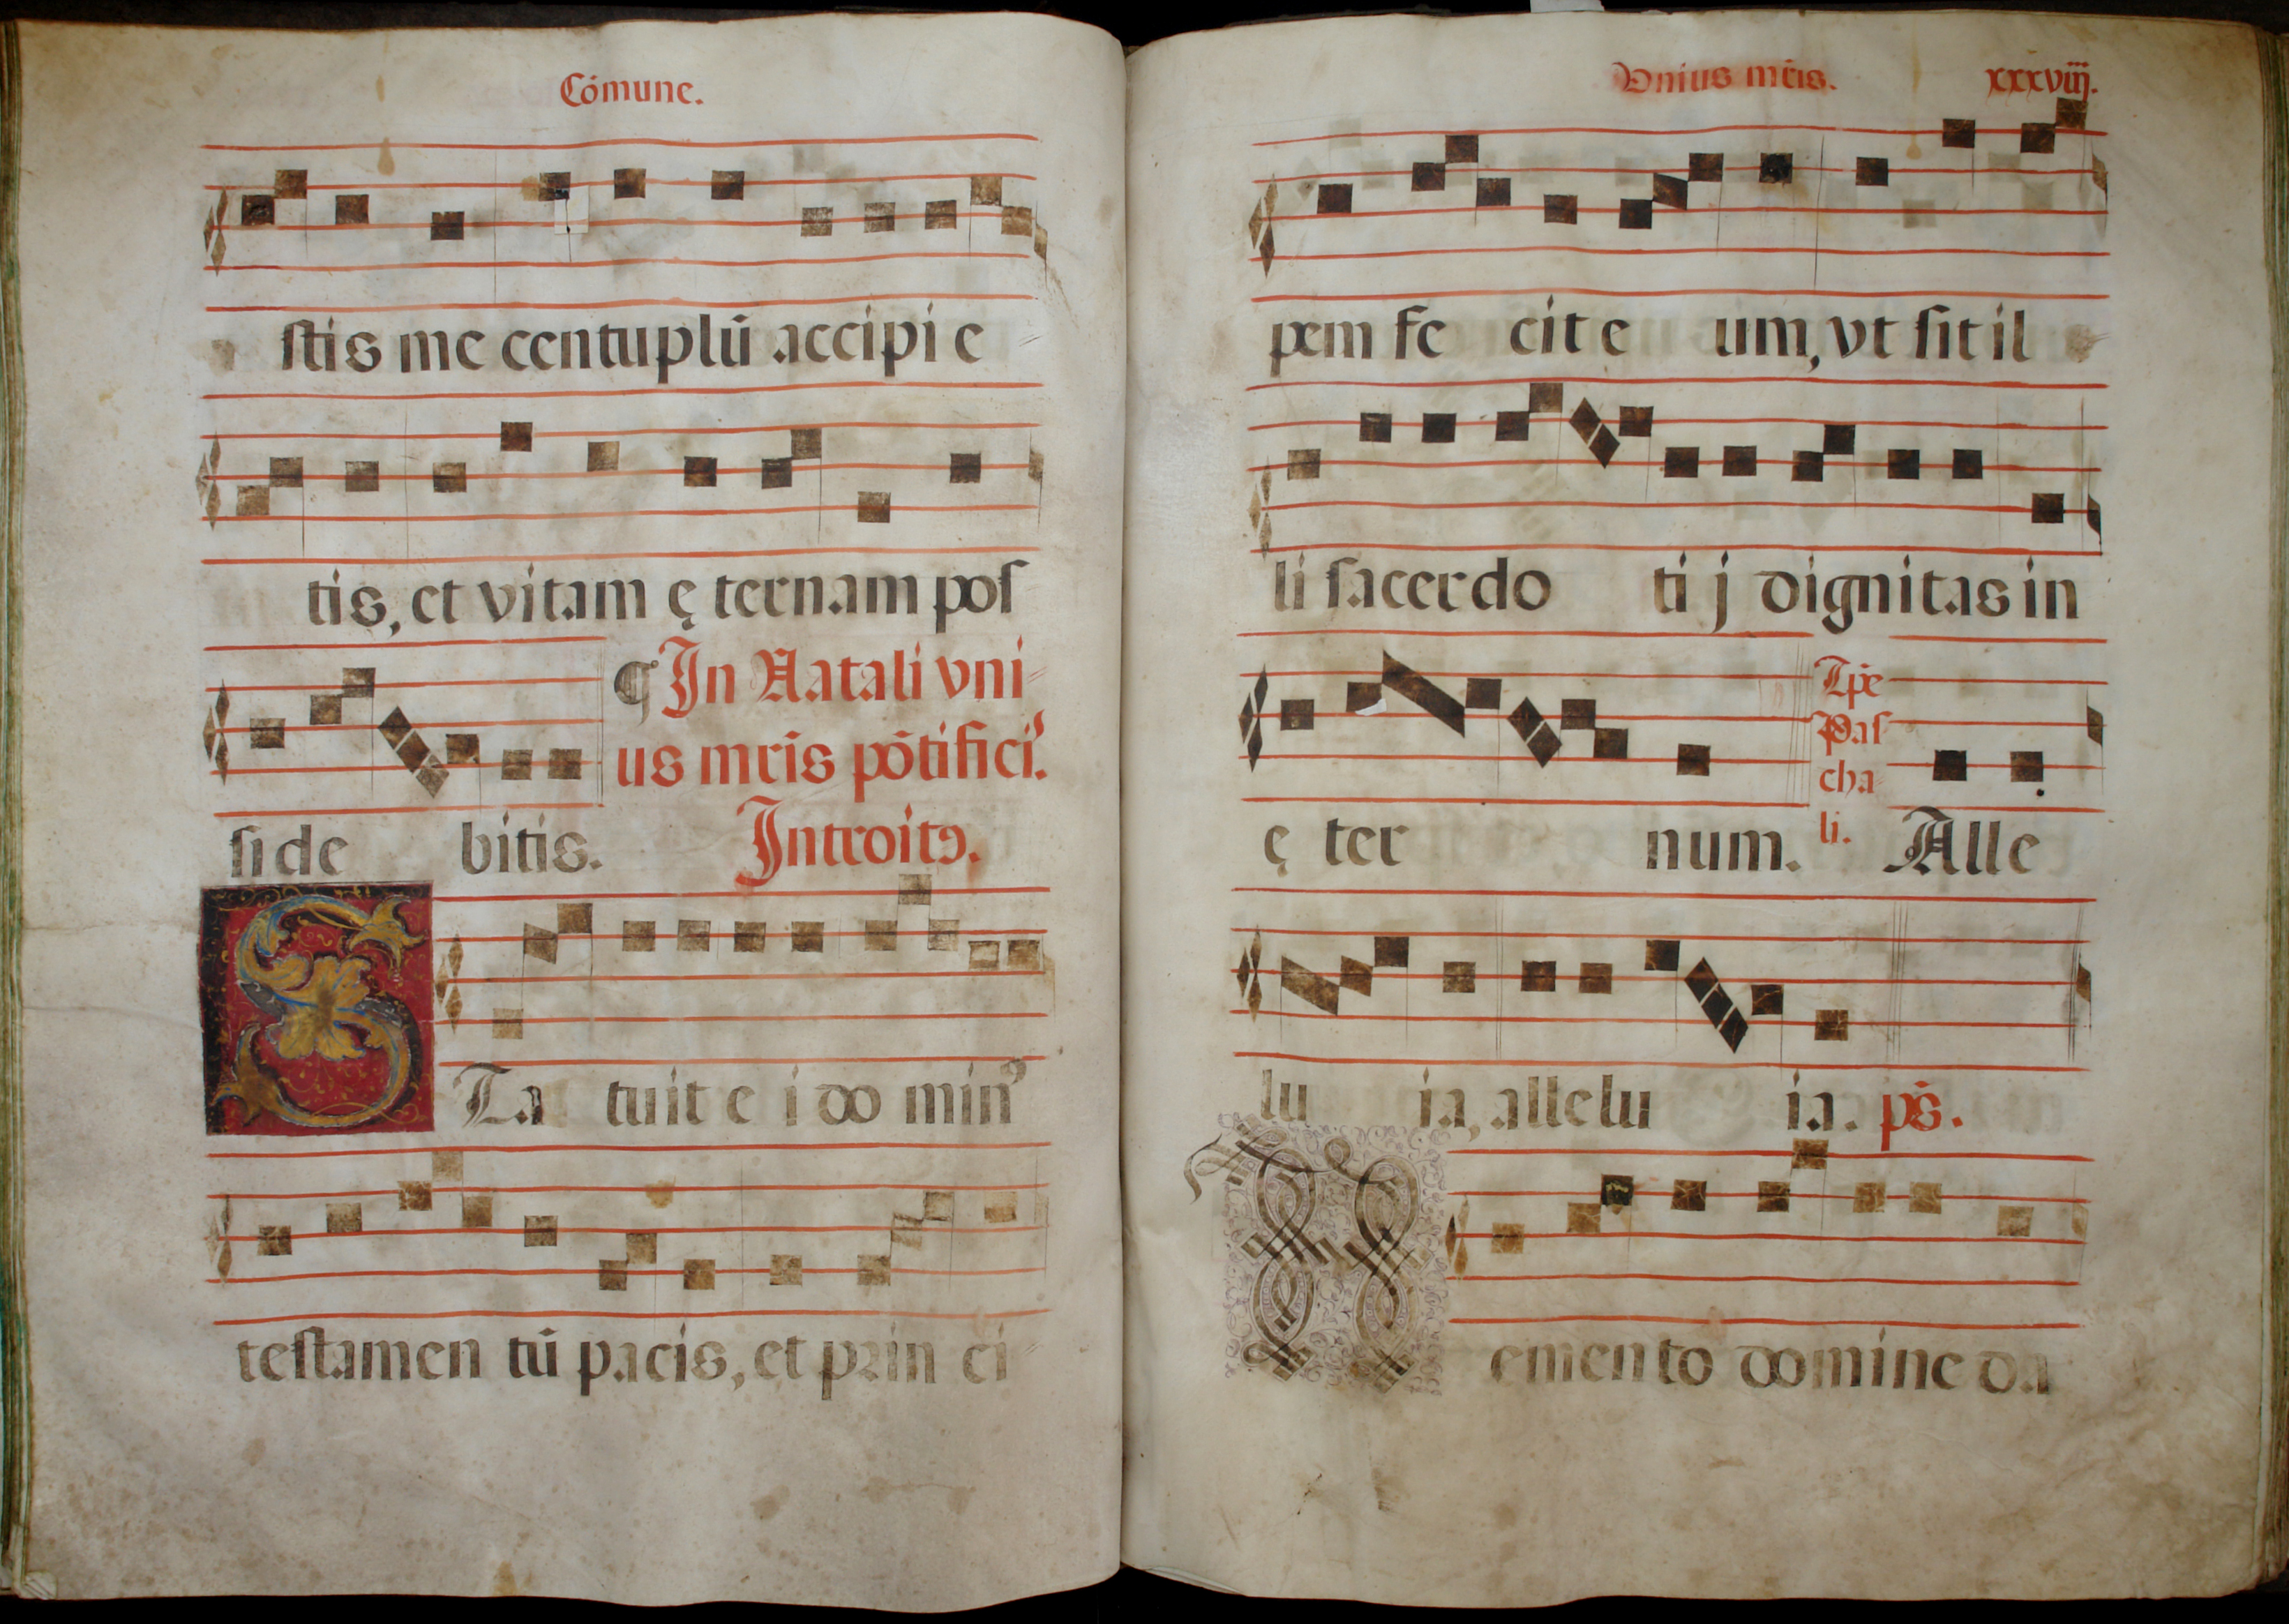 Cómune.
stis me centuplū accipi e
tis, et vitam ę ternam pos
¶ In Natali vni
us mr̄is pōtifici⁹.
si de bitis. Introitꝰ.
STa tuit e i do min⁹
testamen tū pacis, et prin ci
Vnius mr̄is. xxxviij.
pem fe cit e um, vt sit il
li sacer do ti j dignitas in
Tp̄e
Pas
cha
li.
ę ter num. Alle
lu ia, alle lu ia. ps̄.
Memento domine da